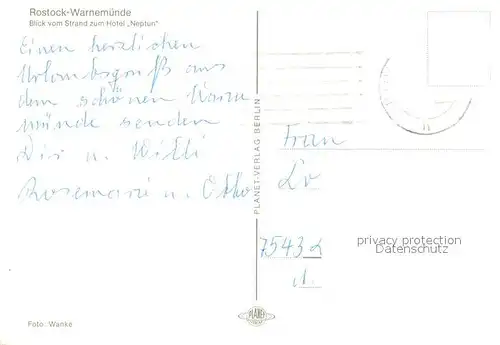 Rostock-Warnemünde
Blick vom Strand zum Hotel „Neptun"
Einen herzlichen
Urlaubsgruß aus
dem schönen Warne
münde senden
Dir u. Willi
Rosemarie u. Otto
PLANET-VERLAG BERLIN
Frau
Lo
7543
privacy protection
Datenschutz
d.
Foto: Wanke
PLANET